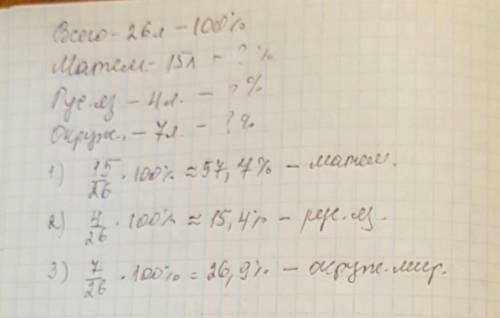 Всего - 26 л - 100%
Матем - 15л - ? %
Рус.яз - 4л. - ?%
Окруж. - 7л - ?%
1) 15/26 · 100% ≈ 57,7% - матем.
2) 4/26 · 100% ≈ 15,4% - рус.яз.
3) 7/26 · 100% = 26,9% - окруж.мир.